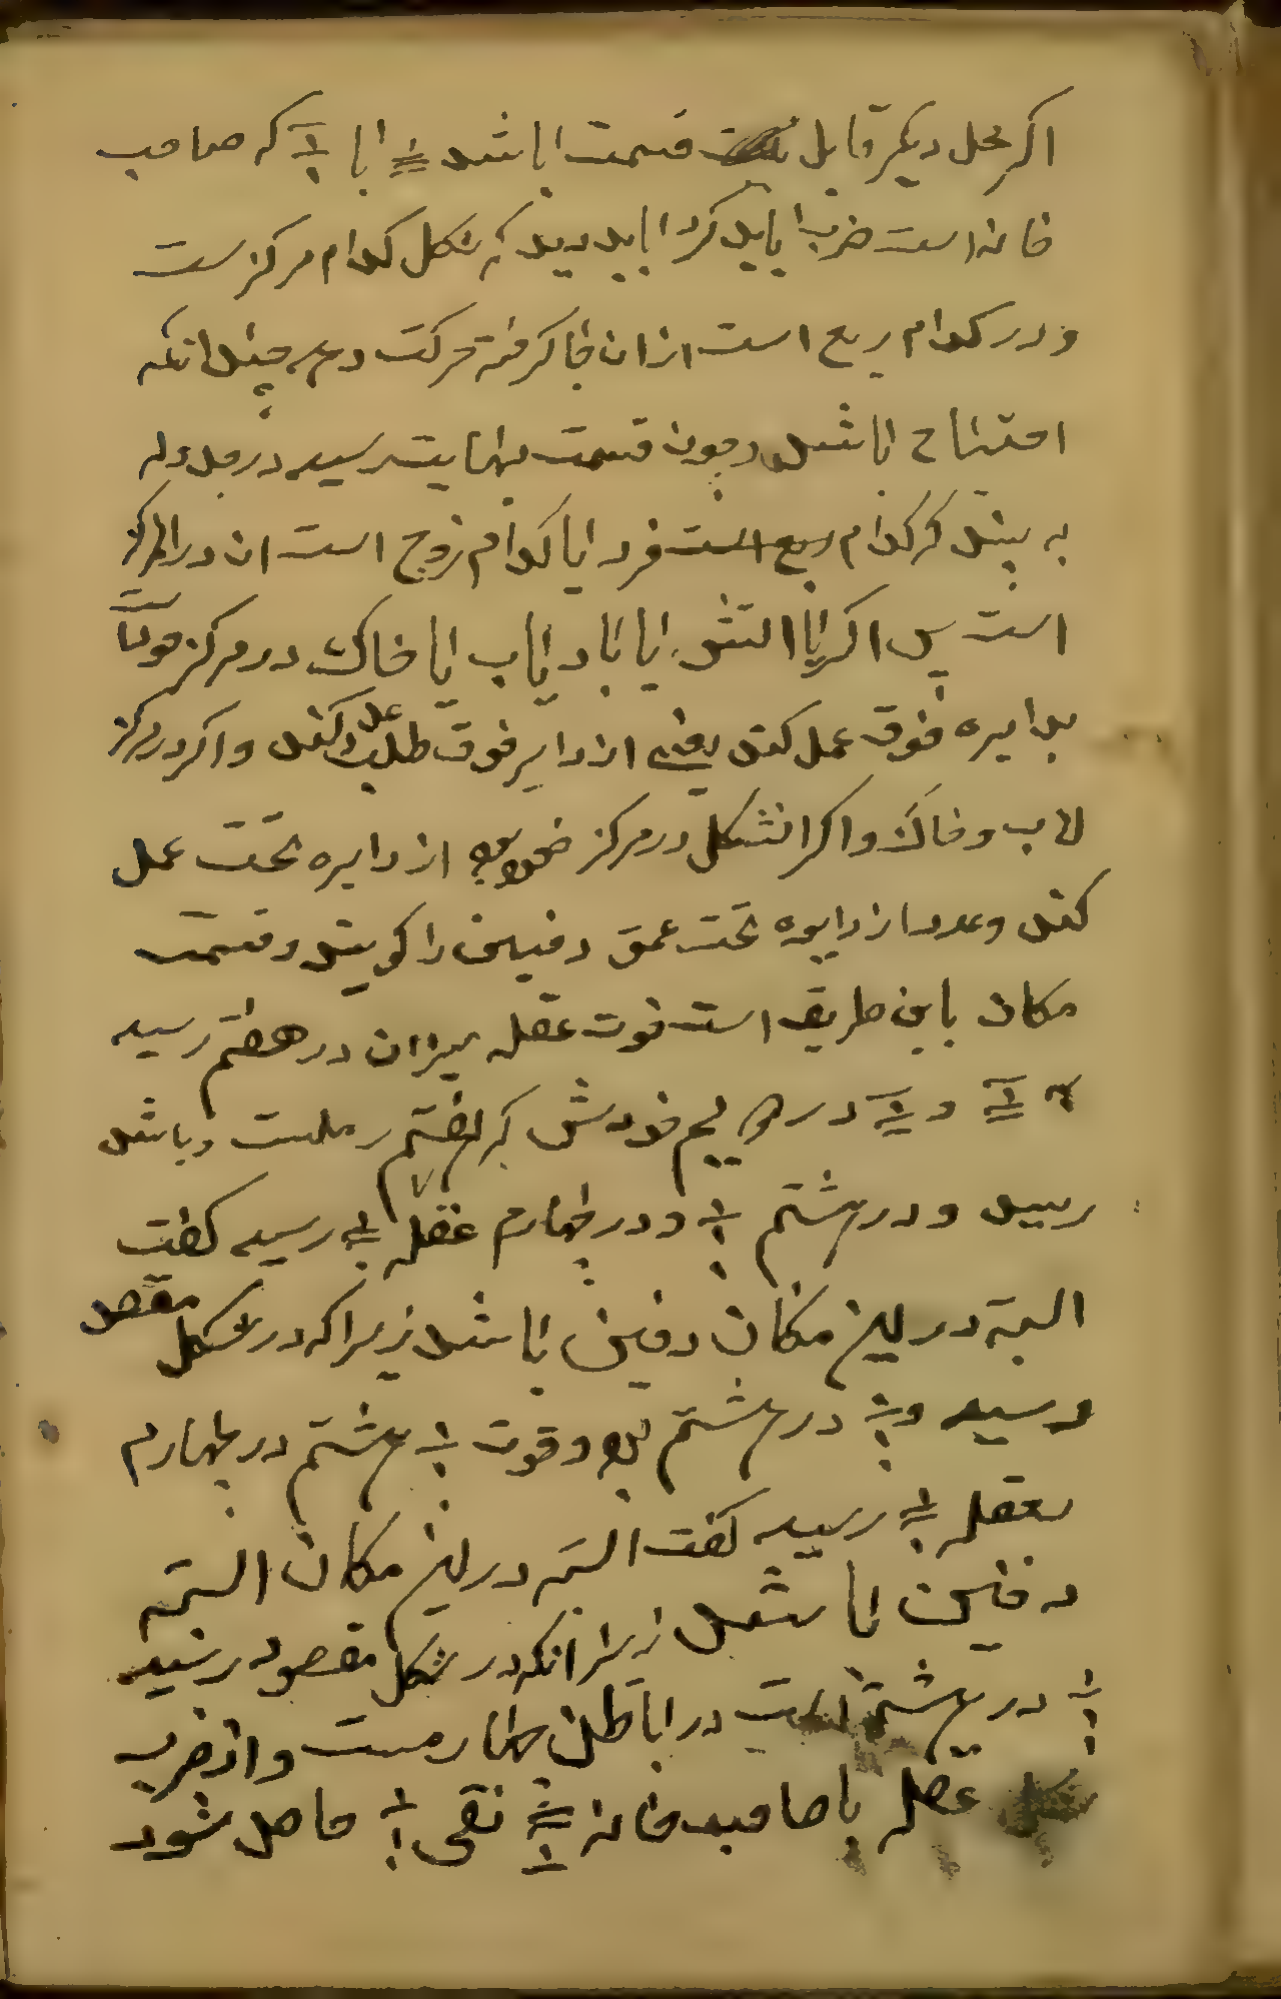 اکر محل دیکر قابل قسمت باشد با که صاحب
خانه است ضرب باید کرد باید دید که شکل کدام مرکز ست
و در کدام ربع است از ان جا کرفته حرکت دهد چندانکه
احتیاج باشد و چون قسمت بنهایت رسید در جدوله
به بیند که کدام ربع است فرد یا کدام زوج است ان در مرکز
است پس اکر اتش یا باد یا اب یا خاک در مرکز
بدایره فوق عمل کند یعنی از دایره فوق طلب کند و اکر در مرکز
اب و خاک و اکر انشکل در مرکز خود بود از دایره تحت عمل
کند و عدد از دایره تحت عمق دفین را کویند و قسمت
مکان باین طریق است قوت عقله میزان در هفتم رسید
که و در خودش که هفتم رملست و باشد
رسید و در هشتم و در چهارم عقله رسید کفت
البته در این مکان دفین باشد زیرا که در شکل مقصد
رسید و در هشتم بود و قوت هشتم در چهارم
بعقله رسید کفت البته در این مکان البته
دفین باشد زیرا انکه در شکل مقصود رسید
در هشتم است در باطن چهارمست و از ضرب
شکل عقله با صاحب خانه نقی حاصل شود